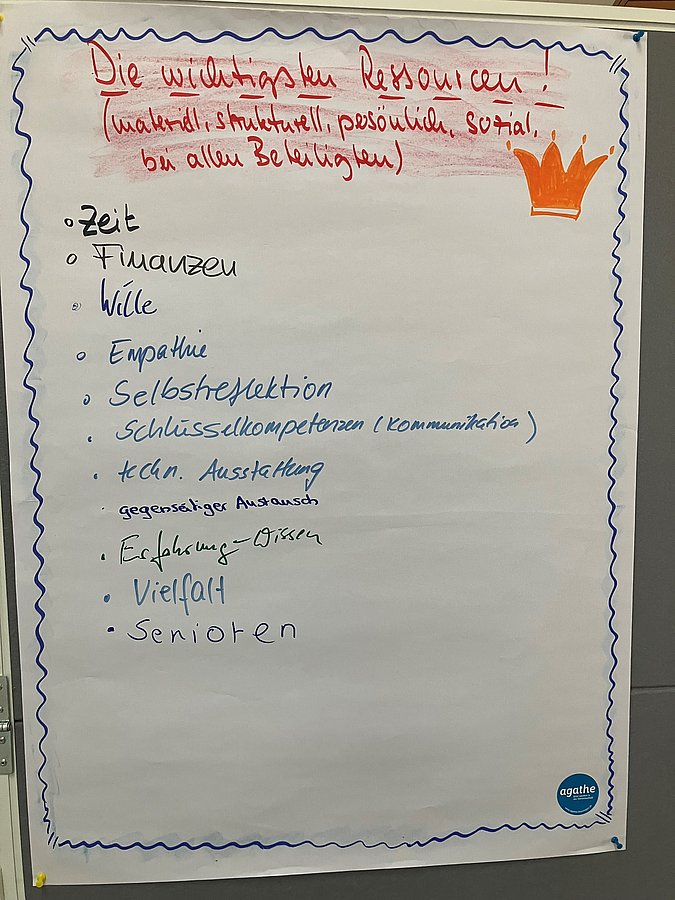 Die wichtigsten Ressourcen!
(materiell, strukturell, persönlich, sozial,
bei allen Beteiligten)
Zeit
Finanzen
Wille
Empathie
Selbstreflektion
Schlüsselkompetenzen (Kommunikation)
techn. Ausstattung
gegensätiger Austausch
Erfahrung-Wissen
Vielfalt
Senioren
agathe